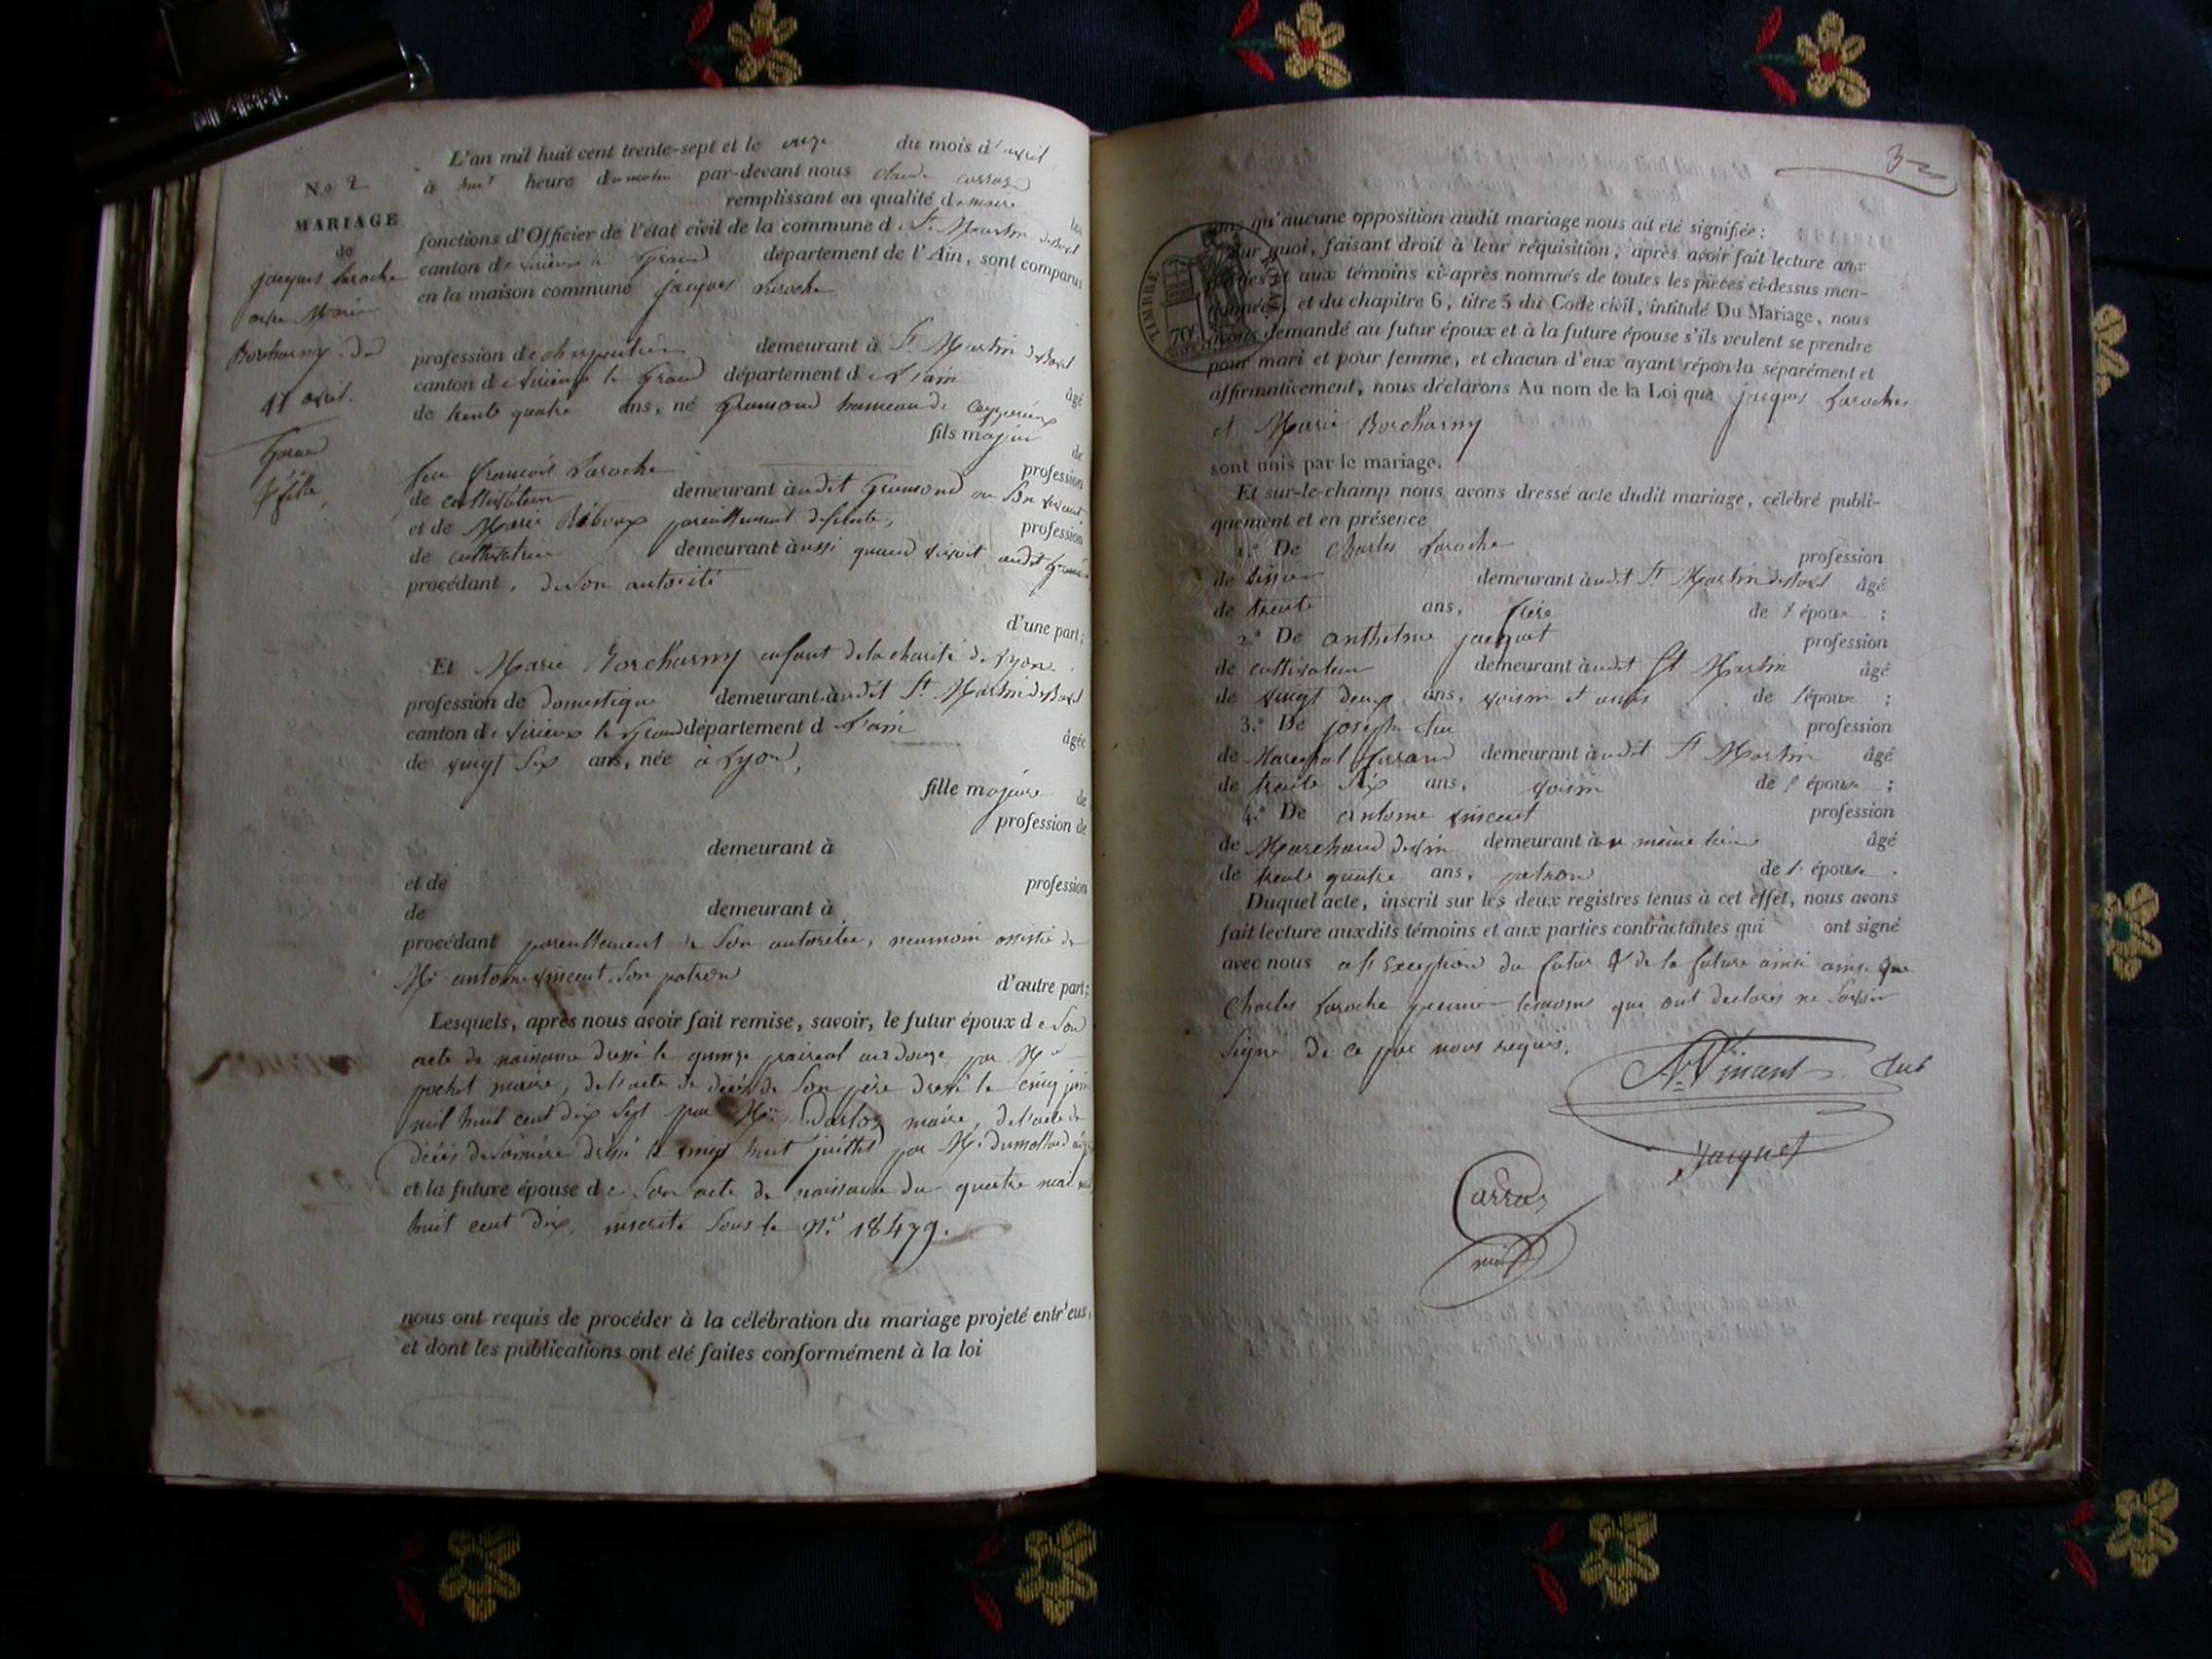 N.o 2
MARIAGE
de
jacques Laroche
avec Marie
Borcharny. du
11 avril.
Garçon
& fille,
L'an mil huit cent trente-sept et le onze du mois d'avril
à huit heure du matin par-devant nous claude carraz
remplissant en qualité de maire les
fonctions d'Officier de l'état civil de la commune de St. Martin
canton de virieux le Grand département de l'Ain, sont comparus
en la maison commune jacques Laroche
profession de charpentier demeurant à St. Martin
canton de virieux le Grand département de l'ain âgé
de trente quatre ans, né Gramond hameau de Ceyzerieux
fils majeur de
feu françois Laroche profession
de cultivateur demeurant àudit Gramond en son vivant,
et de Marie parcillement defunte, profession
de cultivatrice demeurant àussi quand vivoit audit
procédant, de son autorité
d'une part;
Et Marie Borcharny enfant de la charité de Lyon
profession de domestique demeurant àudit St. Martin
canton de virieux le Grand département de l'ain âgée
de vingt Six ans, née à Lyon,
fille majeure de
profession de
demeurant à
et de profession
de demeurant à
procédant pareillement de son autoritée, neanmoin assistée de
Mr. antoine vincent son patron
d'autre part;
Lesquels, après nous avoir fait remise, savoir, le futur époux de son
acte de naissance dressé le quinze prairial an douze par Mr
pochet maire, de l'acte de décès de son père dressé le cinq juin
mil huit cent dix sept par Mr. maire, de l'acte de
décès de sa mère dressé le vingt huit juillet par Mr. Dumollard
et la future épouse de son acte de naissance du quatre mai mil
huit cent dix. inscrite sous le No. 18479.
nous ont requis de procéder à la célébration du mariage projeté entr'eux,
et dont les publications ont été faites conformément à la loi
3
TIMBRE ROYAL
70c
sans qu'aucune opposition audit mariage nous ait été signifiée;
Sur quoi, faisant droit à leur réquisition, après avoir fait lecture aux
parties et aux témoins ci-après nommés de toutes les pièces ci-dessus men-
tionnées, et du chapitre 6, titre 5 du Code civil, intitulé Du Mariage, nous
avons demandé au futur époux et à la future épouse s'ils veulent se prendre
pour mari et pour femme, et chacun d'eux ayant répondu séparément et
affirmativement, nous déclarons Au nom de la Loi que jacques Laroche
et Marie Borcharny
sont unis par le mariage.
Et sur-le-champ nous avons dressé acte dudit mariage, célébré publi-
quement et en présence
1.º De Charles Laroche profession
de tisseur demeurant àudit St Martin âgé
de trente ans, frère de l'époux ;
2.º De anthelme jacquet profession
de cultivateur demeurant àudit St Martin âgé
de vingt deux ans, voisin et amis de l'époux ;
3.º De joseph profession
de Marechal ferrand demeurant àudit St Martin âgé
de trente six ans, voisin de l'époux ;
4.º De antoine vincent profession
de Marchand de vin demeurant àu même lieu âgé
de trente quatre ans, patron de l'épouse.
Duquel acte, inscrit sur les deux registres tenus à cet effet, nous avons
fait lecture auxdits témoins et aux parties contractantes qui ont signé
avec nous a l'exception du futur & de la future ainsi ainsi que
Charles Laroche premier temoins qui ont declarés ne savoir
signé de ce par nous requis.
Vincent
Jacquet
Carraz